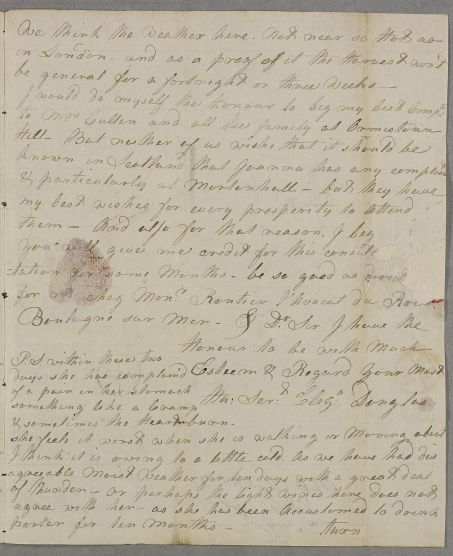 We think the weather here. not near so Hott as
in London. and as a proof of it the Harvest won't
be general for a fortnight or three weeks —
I would do myself the honour to beg my best Compts
to Mrs Cullen and all the family at Ormistoun
Hill - But neither of us wishes that it should be
known in Scotland that Joanna has any complaint
& particularly at Mortonhall - but they have
my best wishes for every prosperity to attend
them - And also for that reason. I beg
you will give me credit for this consul
=tation for some Months - be so good as
for me chez Monr Routier l'Avocat du Roi a
Boulogne sur Mer - & Dr Sir I have the
Honour to be with Much
Esteem & Regard your Most
Hu: Sert Eliza Douglas
P.S within these two
days she has complain'd
of a pain in her stomach
something like a Cramp
& sometimes the Heartburn.
she feels it worst when she is walking or Moving about
I think it is owing to a little cold as we have had dis
agreeable Moist Weather for ten days with a great deal
of thunder - or perhaps the light wines here does not
agree with her - as she has been Accustomed to drink
porter for ten Months -
turn